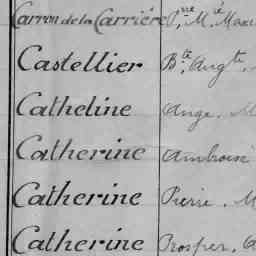 Carron de la Carrière Pre. M.e Maxi
Castellier Bte. Augte.
Catheline Ange. M
Catherine Ambroise
Catherine Pierre. M
Catherine Prosper. A